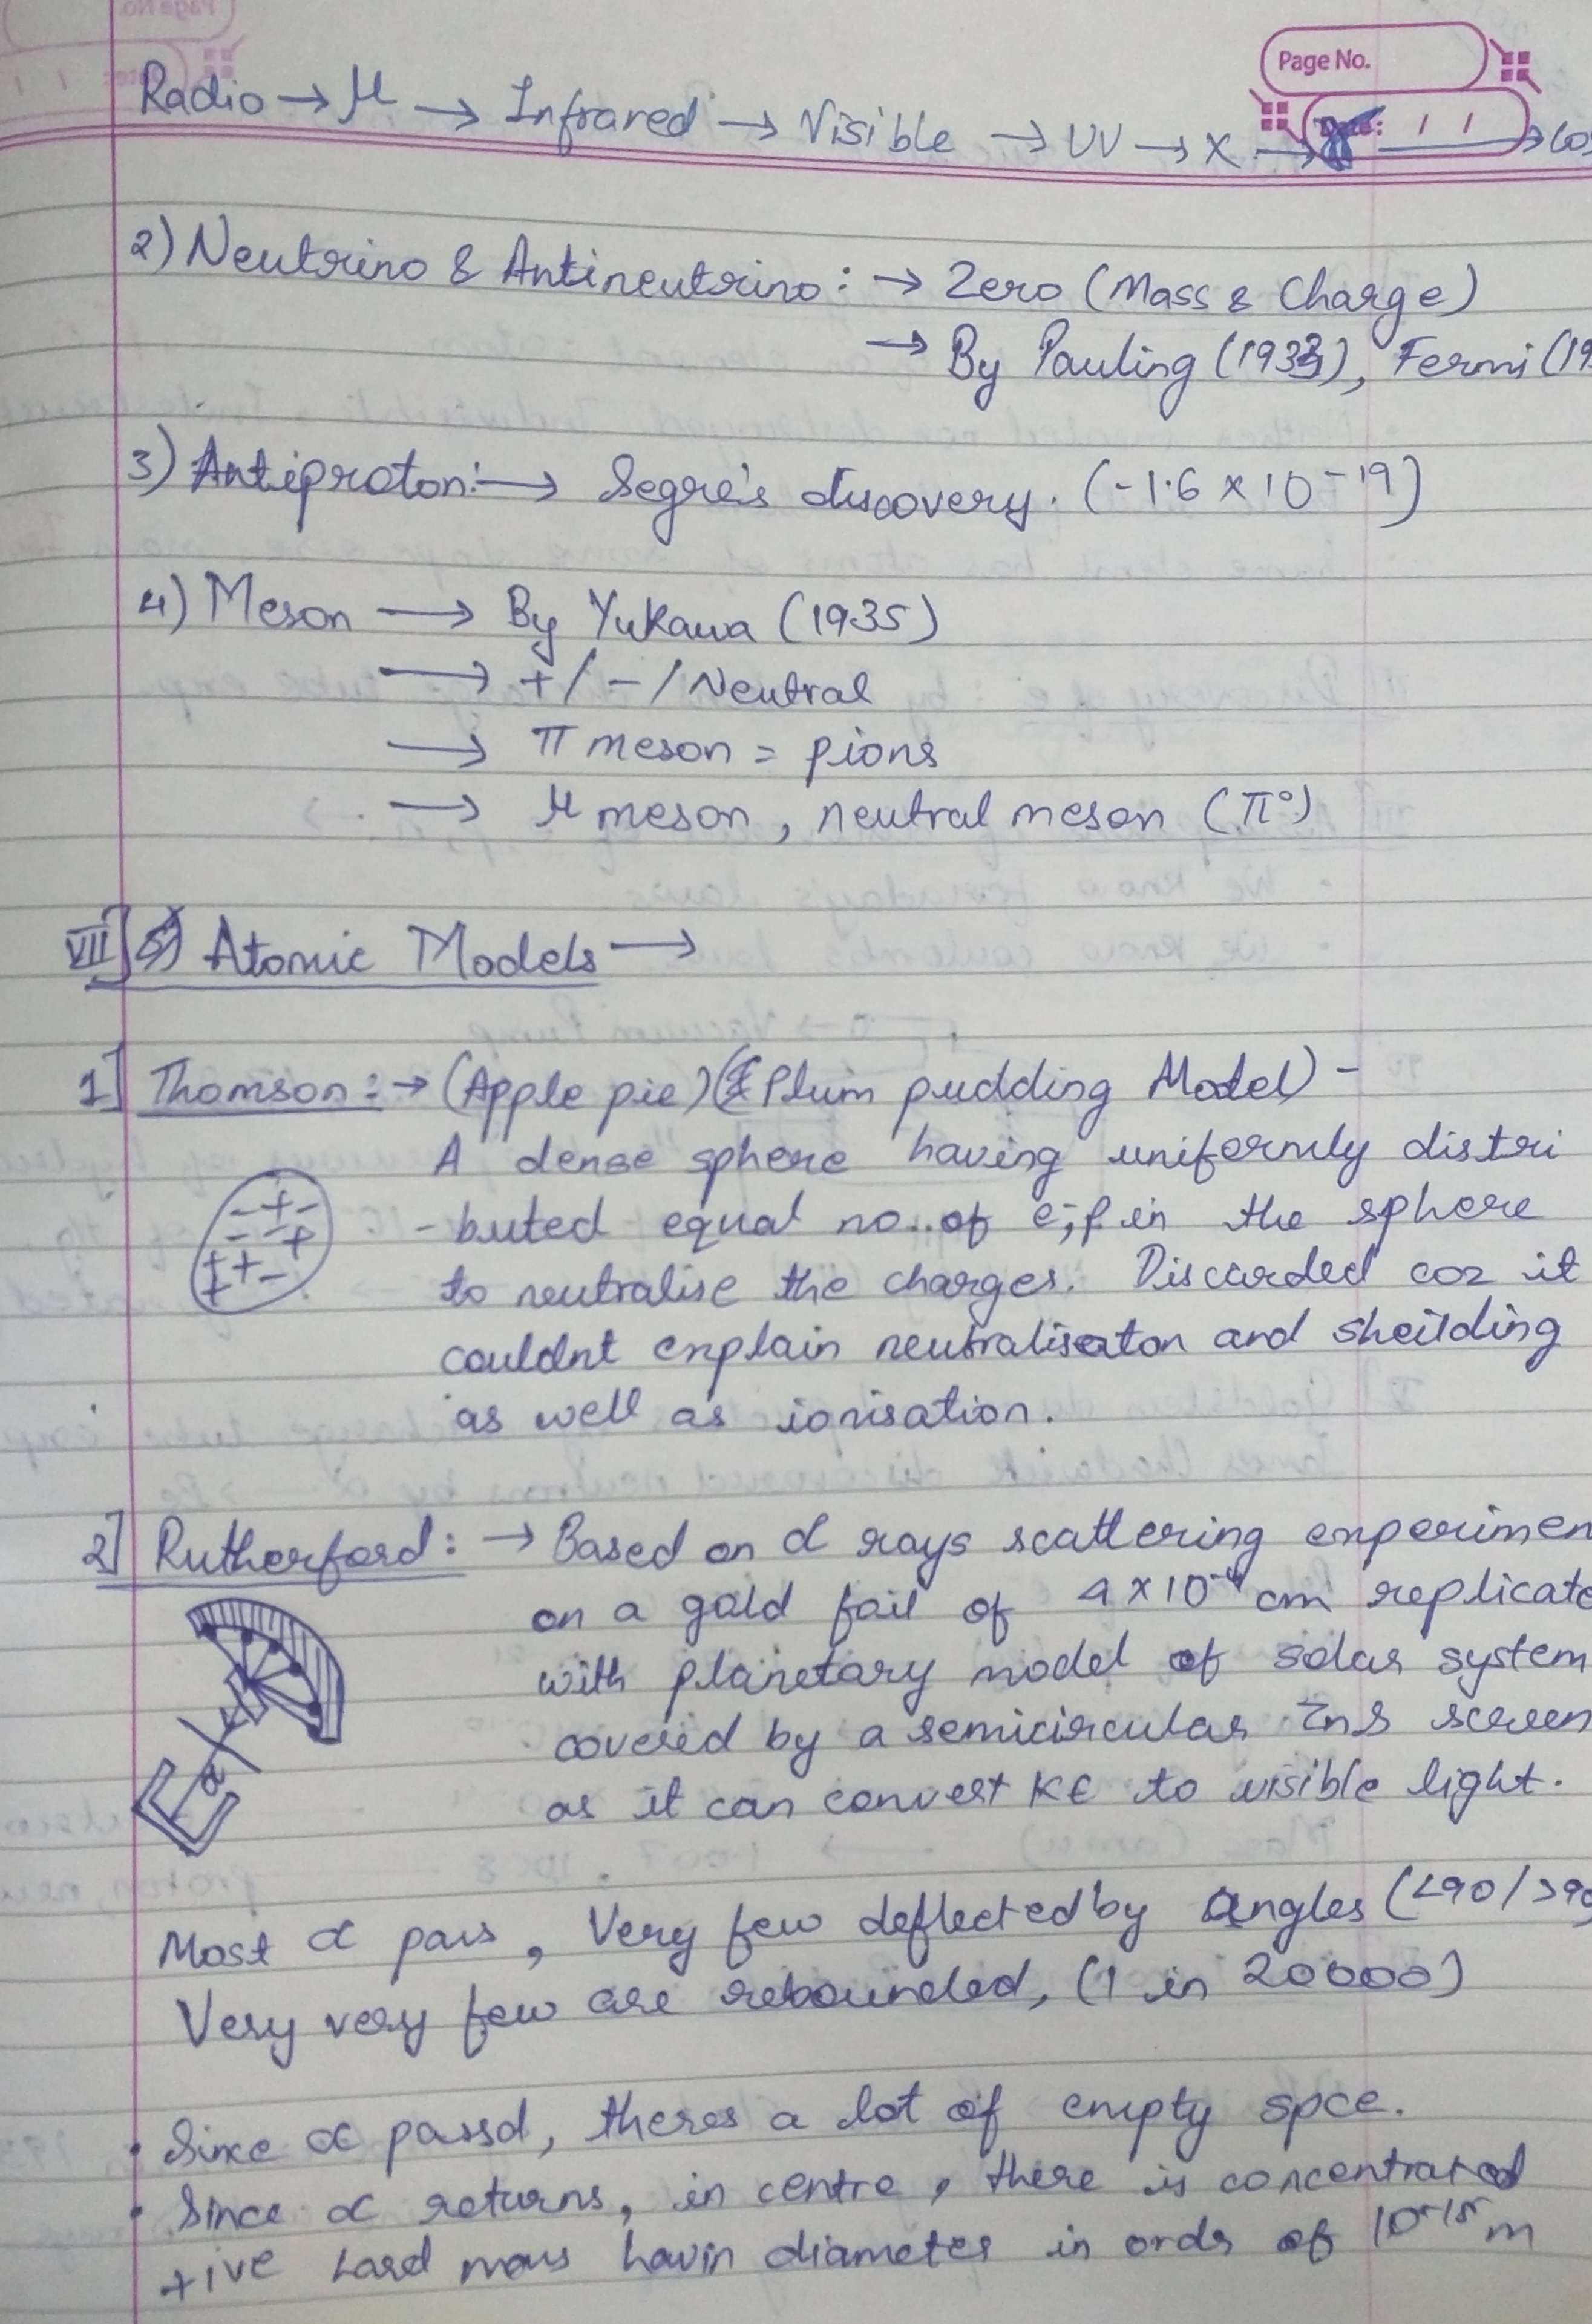 Page No.
Date: / /
Radio → μ → Infrared → Visible → UV → X → γ → Cos
2) Neutrino & Antineutrino: → Zero (Mass & Charge)
→ By Pauling (1933), Fermi (19
3) Antiproton: → Segre's discovery. (-1.6 × 10⁻¹⁹)
4) Meson → By Yukawa (1935)
→ + / - / Neutral
→ π meson = pions
→ μ meson, neutral meson (π°)
VII] Atomic Models →
1] Thomson: → (Apple pie) (Plum pudding Model) -
A dense sphere having uniformly distri
-buted equal no. of e⁻, p in the sphere
to neutralise the charges. Discarded coz it
couldnt explain neutralisaton and sheilding
as well as ionisation.
2] Rutherford: → Based on α rays scattering experimen
on a gold foil of 4 × 10⁻⁴ cm replicate
with planetary model of solar system
covered by a semicircular ZnS screen
as it can convert KE to visible light.
α
Most α pass, Very few deflected by angles (<90 / >90
Very very few are rebounded, (1 in 20000)
• Since α passd, theres a lot of empty spce.
• Since α returns, in centre, there is concentrated
+ive hard mass havin diameter in ordr of 10⁻¹⁵ m